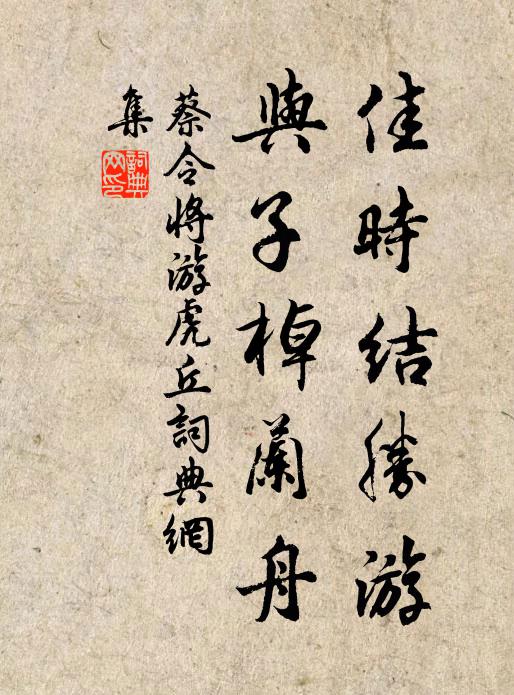 佳時結勝游
與子棹蘭舟
蔡令将游虎丘詞典網
集
詞典
网印